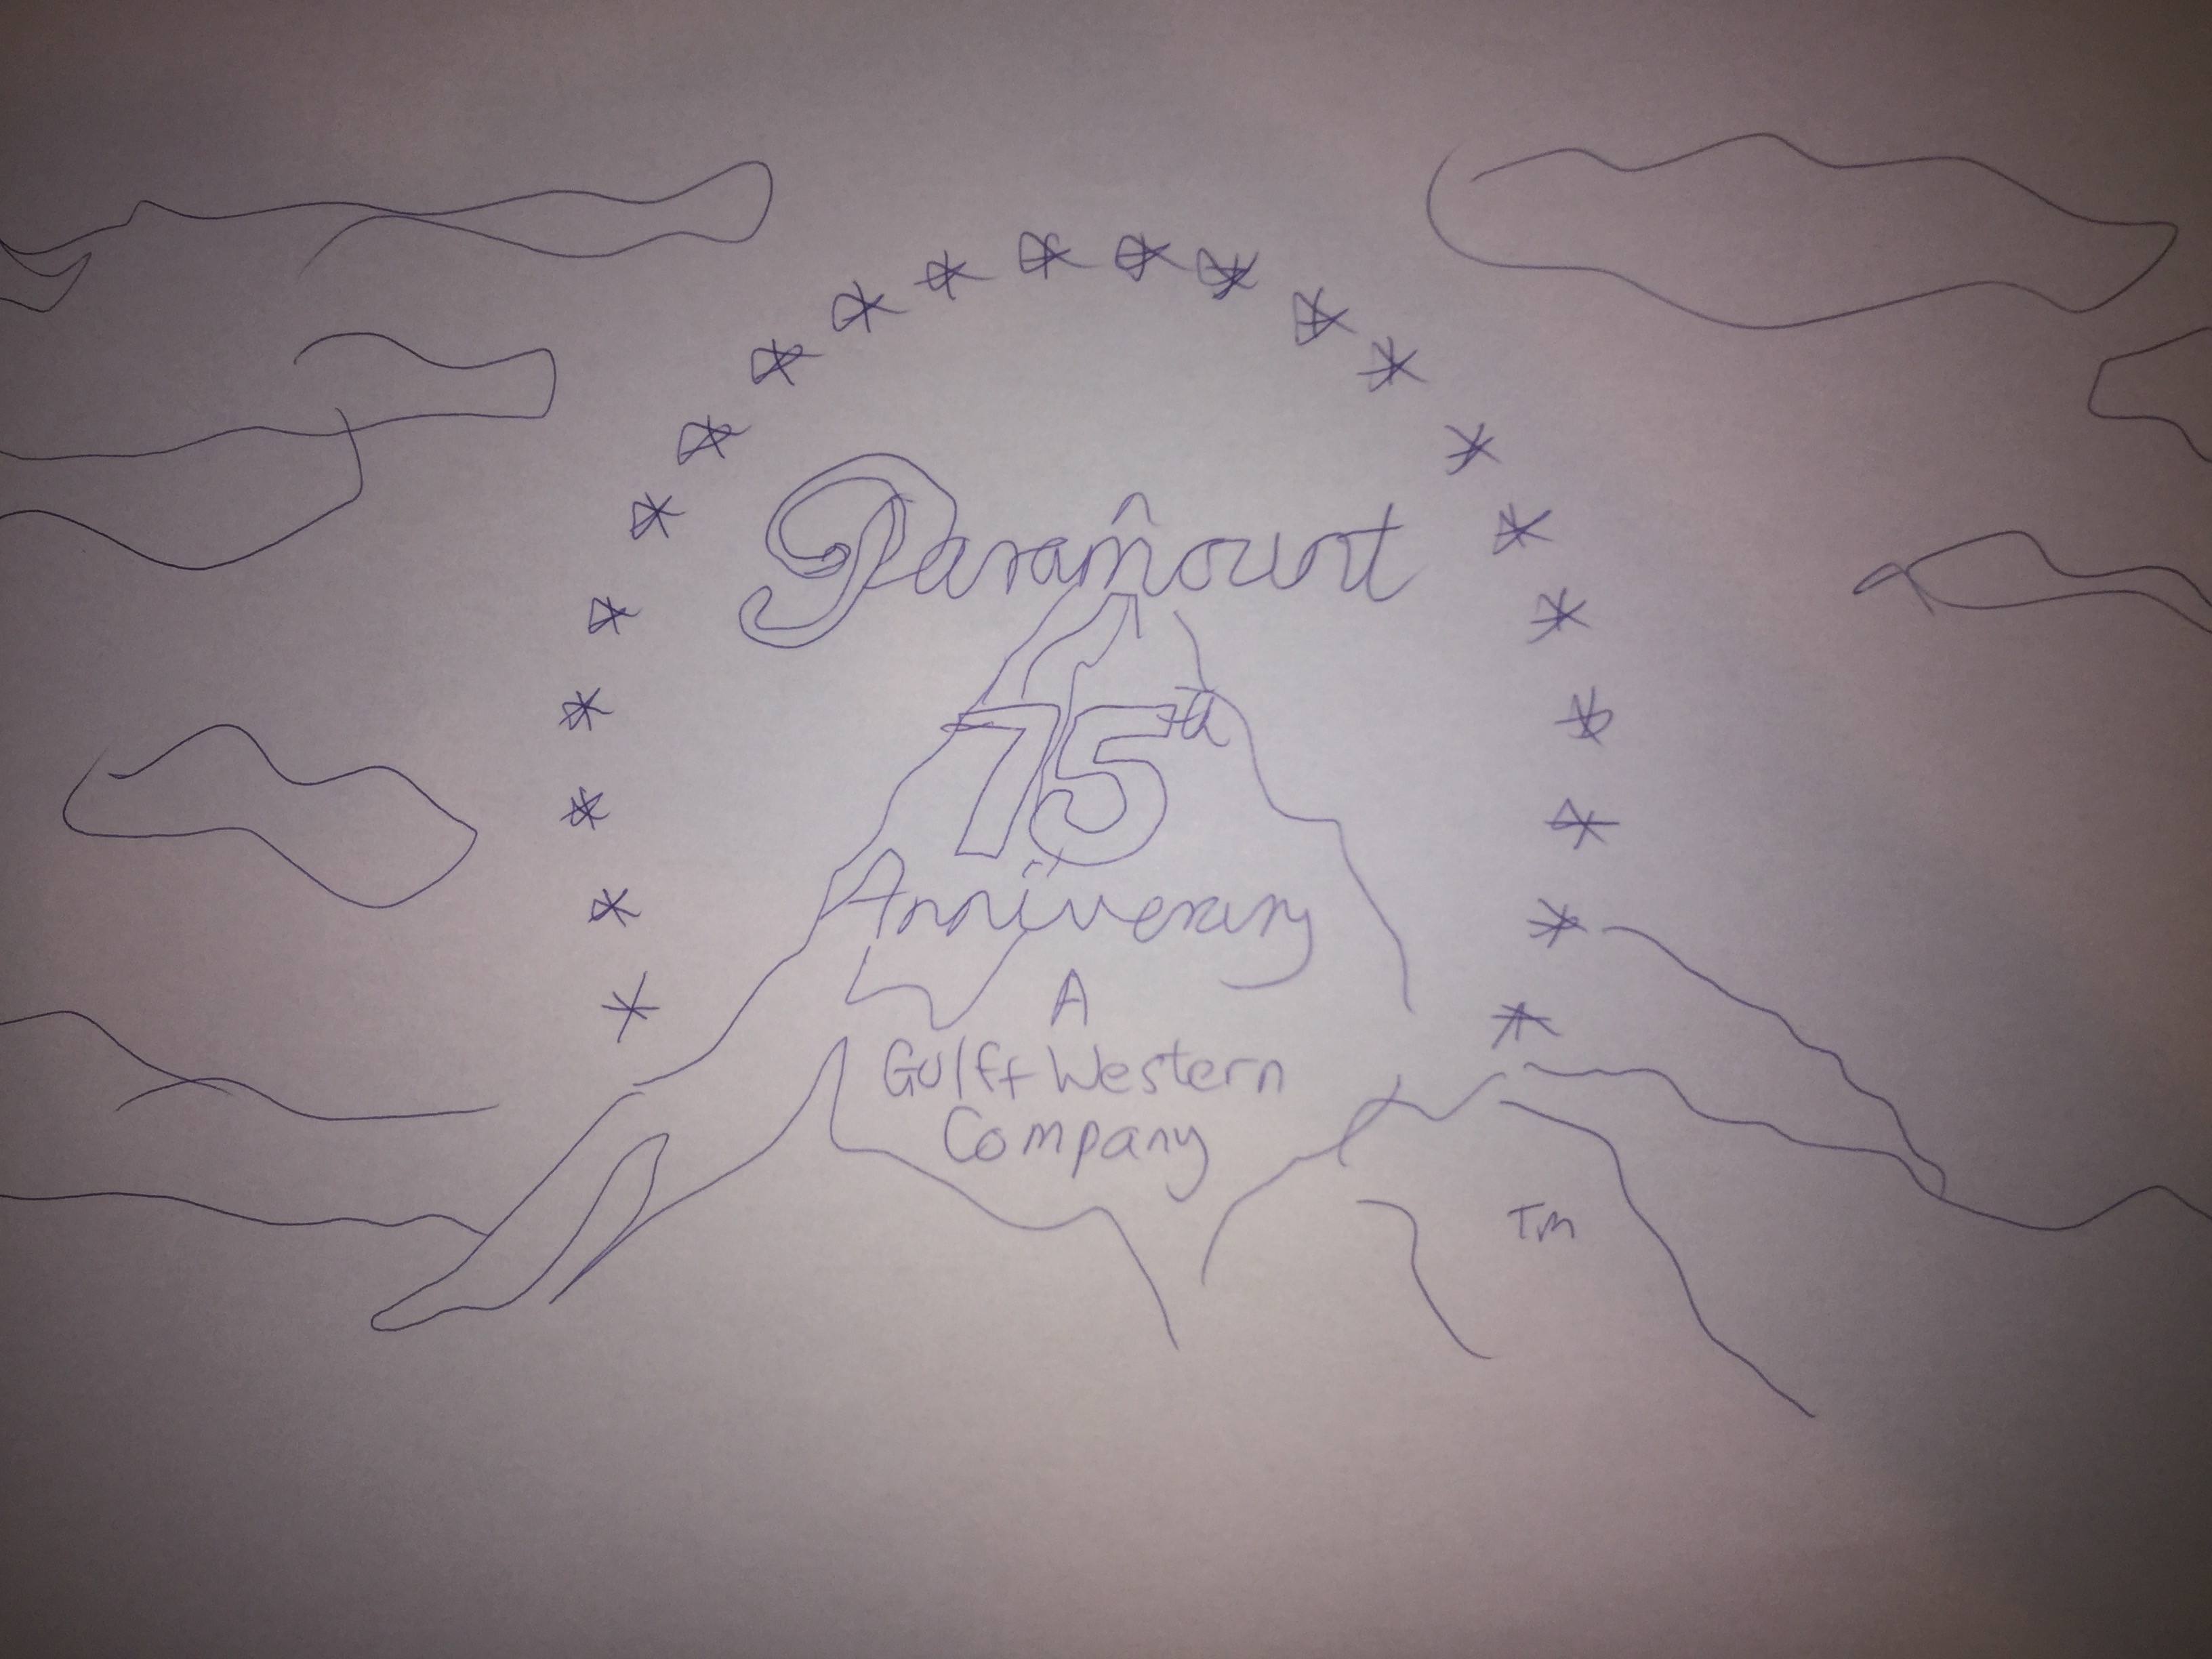 Paramount
75th
Anniversary
A
Gulf+Western
Company
TM